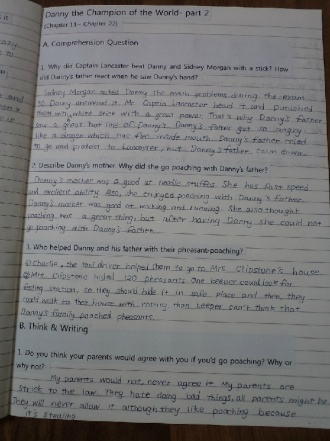 Danny the Champion of the World- part 2
(Chapter 11~ Chapter 22)
A. Comprehension Question
1. Why did Captain Lancaster beat Danny and Sidney Morgan with a stick? How
did Danny's father react when he saw Danny's hand?
Sidney Morgan asked Danny the math problems during the exam
so Danny answered it. Mr. Captain Lancaster heard it and punished
them with white stick with a great power. That's why Danny's father
saw a great hot line of Danny's. Danny's father got so angry
like a dragon which has fire inside mouth. Danny's father tried
to go and protest to Lancaster, but Danny's father calm down.
2. Describe Danny's mother. Why did she go poaching with Danny's father?
Danny's mother was a good at needle stuffes. She has fast speed
and ability. Also, she enjoyes poaching with Danny's father.
Danny's mother was good at walking and running. She also thought
poaching was a great thing, but after having Danny she could not
go poaching with Danny's father.
3. Who helped Danny and his father with their pheasant-poaching?
① Charlie, the taxi driver helped them to go to Mrs. Clipstone's house.
② Mrs. Clipstone hided 120 pheasants. One keeper could look for
station, so they should hide it in safe place and then, they
could walk to their house with nothing than keeper can't think that
Danny's family poached pheasants.
B. Think & Writing
1. Do you think your parents would agree with you if you'd go poaching? Why or
why not?
My parents would not, never agree it. My parents are
strict to the law. They hate doing bad things, all parents might be.
They will never allow it although they like poaching because
it's stealing.